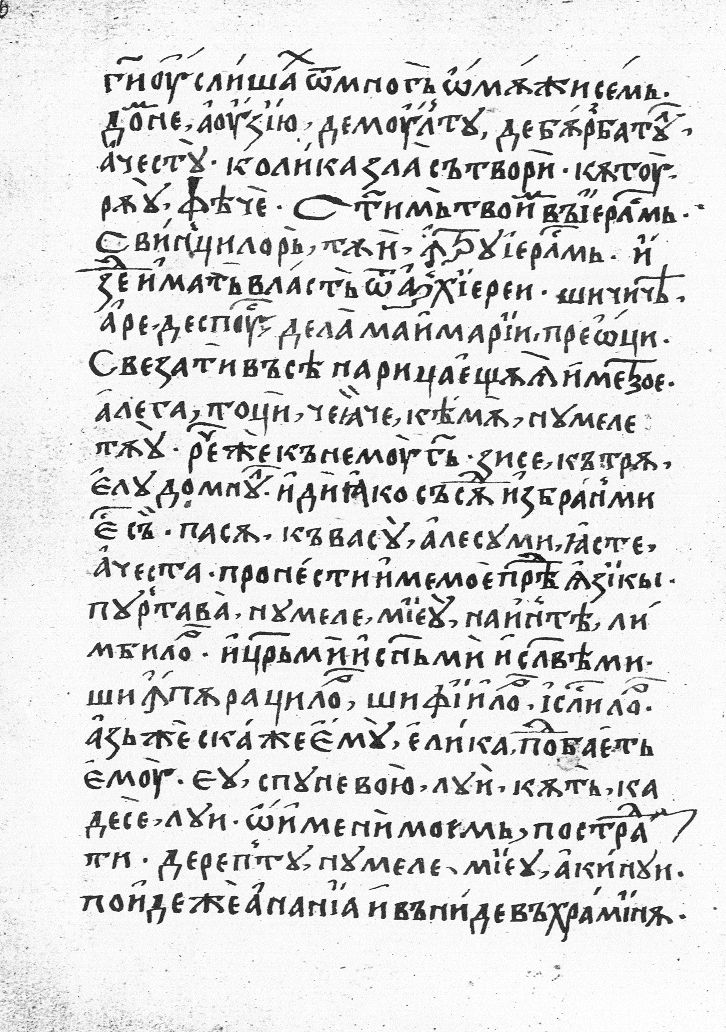 гн҃и оуслишах ѿ многъ ѡ мѫжи семь.
доⷨне, ауꙁїю, де моулт҃у, де бѫрбатуⷧ,
ачестꙋ· колика ꙁла сътвори· кѫтоу
рѫꙋ, фѣче· Ст҃имь твоиⷨ въ їераⷭмь.
Свинцилорь, тѫи, ꙟтру їераⷭмь. и
ꙁⷣе имать власть ѿ архїереи· шичичѣ,
аре, деспоус де ла маимарїи, преѡци.
Свеꙁати въсѣ нарицаѥщѫѫ име твое.
а лега, тоци, че ꙗче, кѣмѫ, нумеле
тѫꙋ· реⷱ же къ немоу г҃ь· ꙁисе, кѫтрѫ,
елу домнуⷧ· иди ꙗко съсѫⷣ иꙁбран ми
есъ· пасѫ, къ васꙋ, алесу ми, ꙗсте,
ачеста· пронести име мое прѣⷣ ѧꙁікы·
пурта ва, нумеле, мїеꙋ, наинтѣ, ли
мбилоⷬ· и цр҃ьми и сн҃ьми и сл҃вѣми·
ши ꙟпѫрацилоⷬ, ши фїилоⷬ, іс҃лилоⷬ.
аꙁь же скаже емꙋ, елика, побаⷣеть
емоу· еу, спуне вою, луи, кѫть, ка
десе, луи· ѡ имени моемь, постраⷣ
ти· дерепту, нумеле, мїеу, а кинуи·
поиде же ананїа и вьниде въ храминѫ·